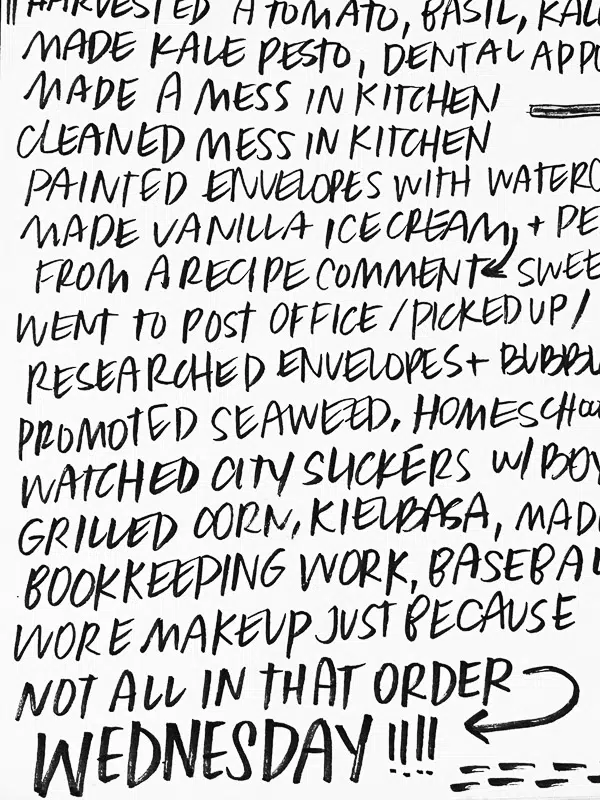 HARVESTED A TOMATO, BASIL, KAL
MADE KALE PESTO, DENTAL APPO
MADE A MESS IN KITCHEN
CLEANED MESS IN KITCHEN
PAINTED ENVELOPES WITH WATERC
MADE VANILLA ICE CREAM, + PE
FROM A RECIPE COMMENT SWEE
WENT TO POST OFFICE / PICKED UP /
RESEARCHED ENVELOPES + BUBBL
PROMOTED SEAWEED, HOMESCHOO
WATCHED CITY SLICKERS W/ BOY
GRILLED CORN, KIELBASA, MAD
BOOKKEEPING WORK, BASEBAL
WORE MAKEUP JUST BECAUSE
NOT ALL IN THAT ORDER
WEDNESDAY !!!!